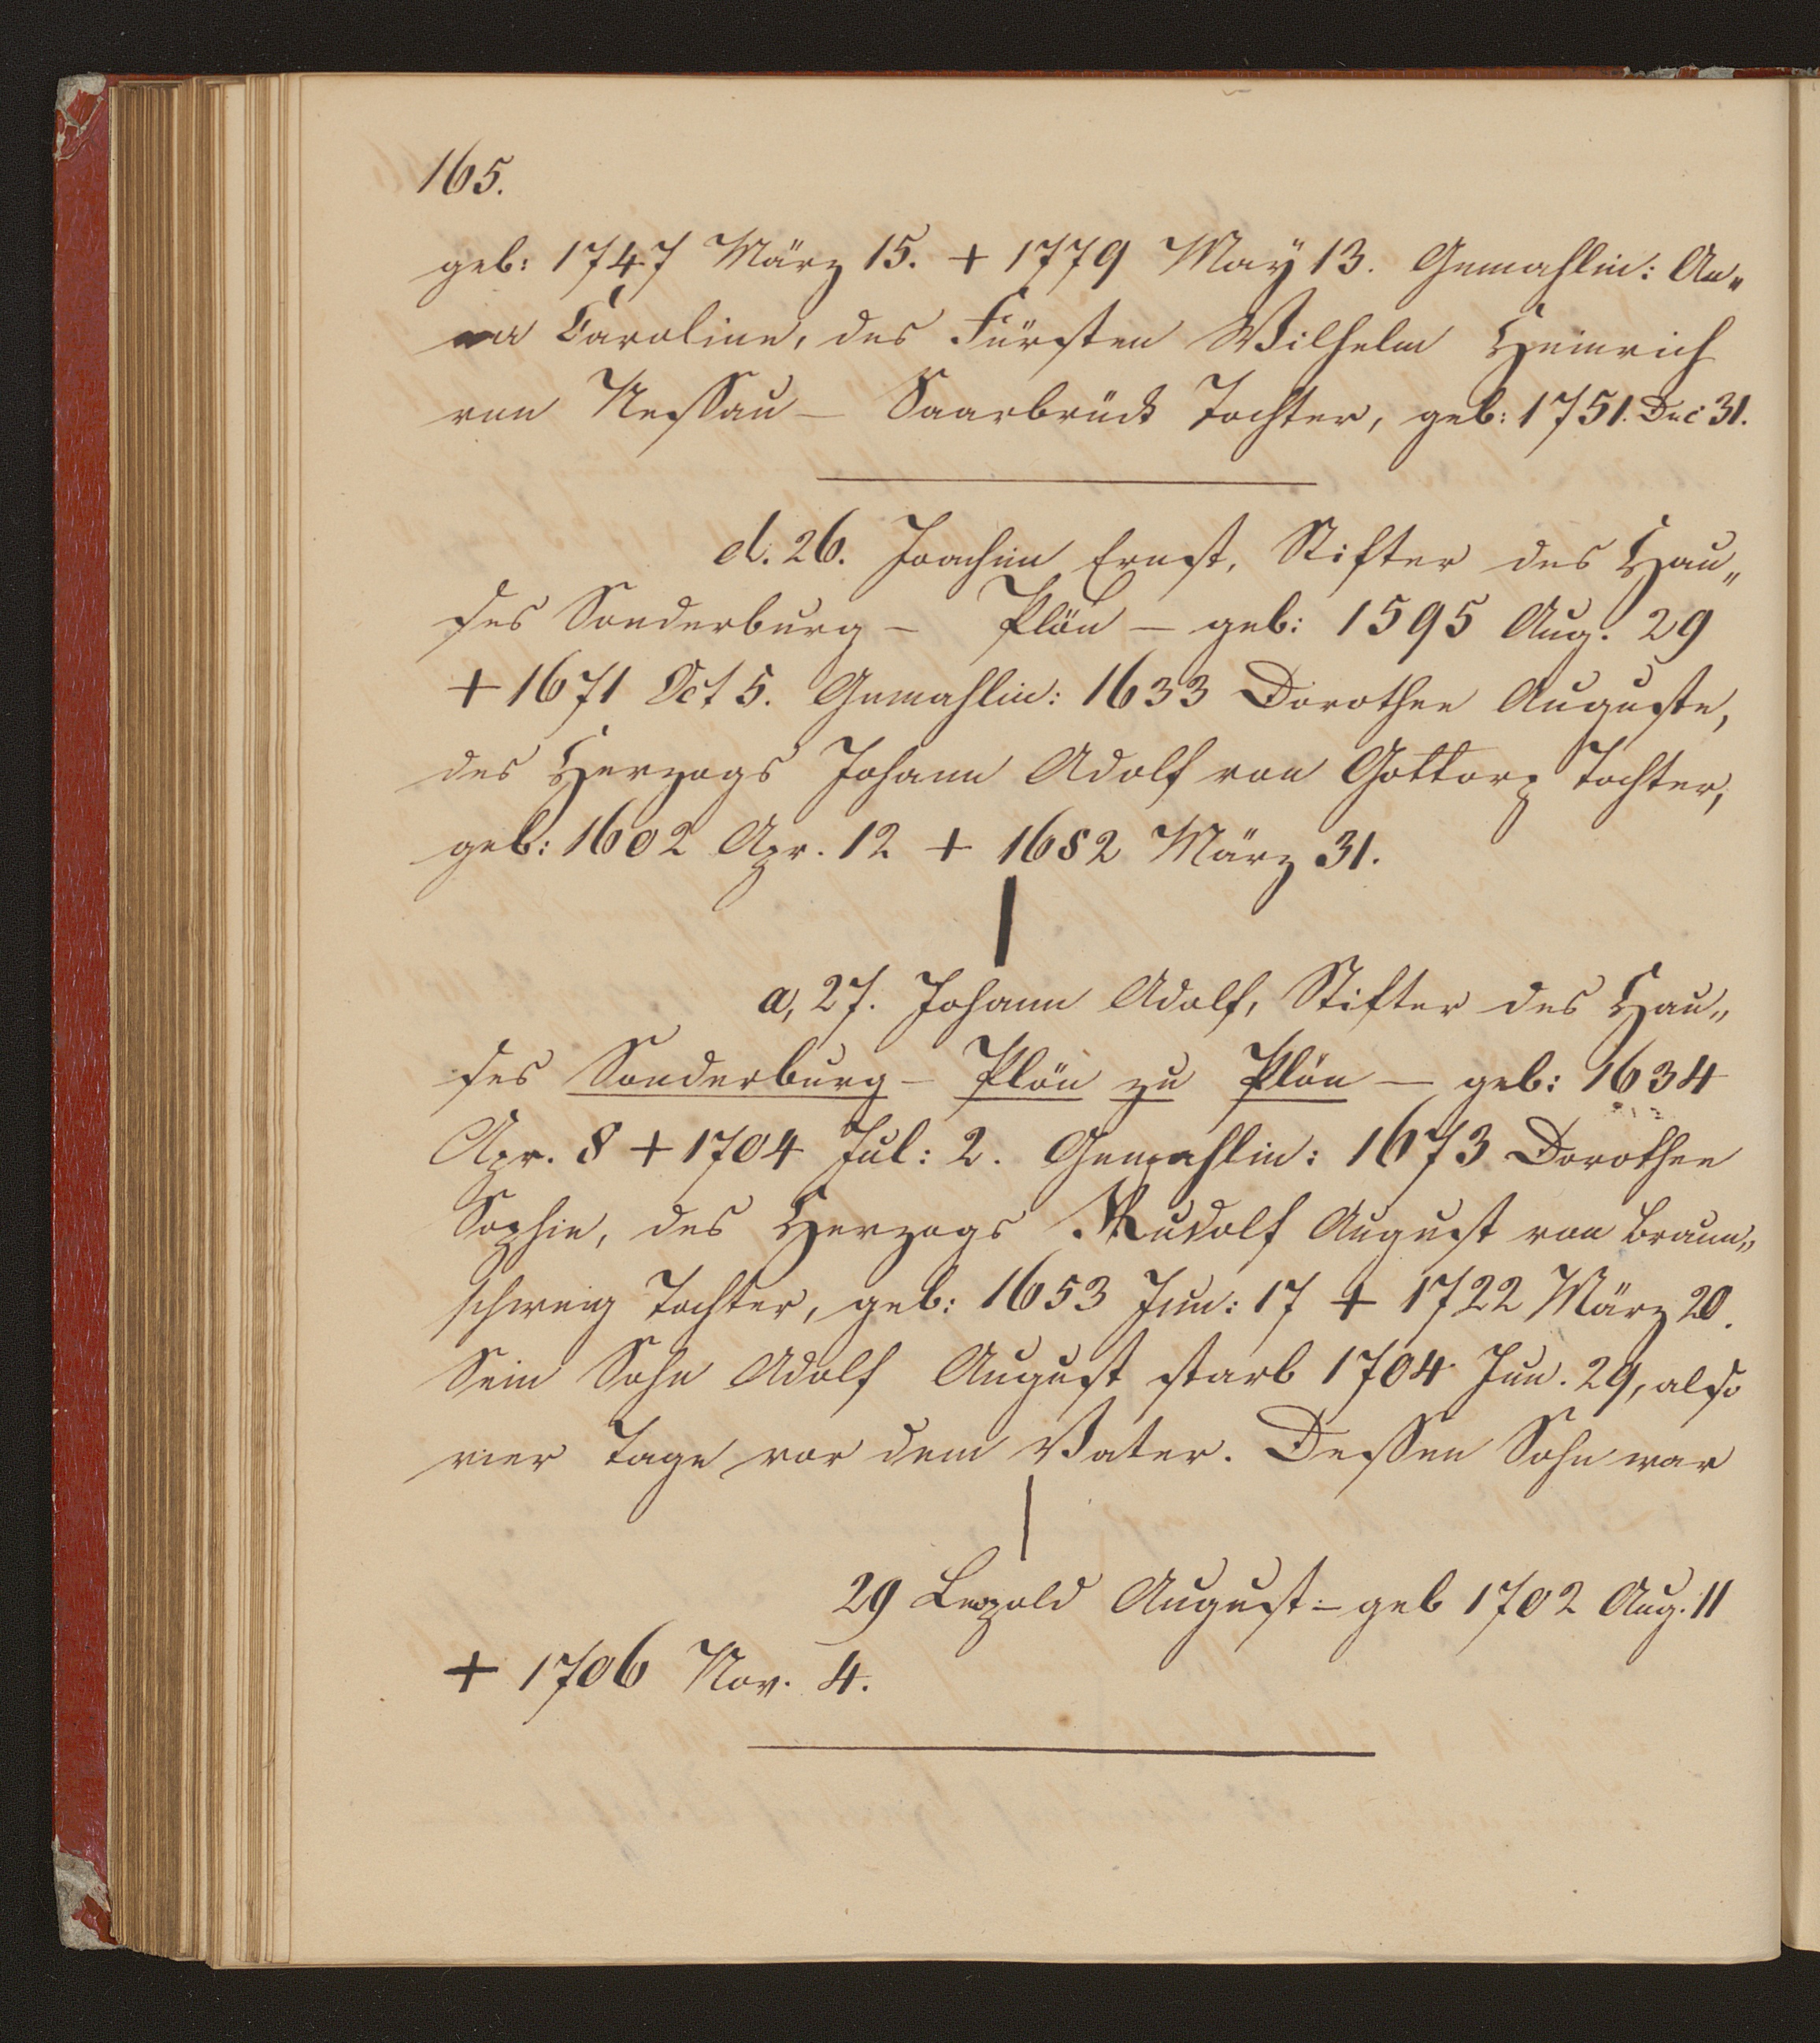 165.
geb: 1747 März 15. + 1779 May 13. Gemahlin: An„
na Caroline, des Fürsten Wilhelm Heinrich
von Nassau — Saarbrück Tochter, geb: 1751. Dec 31.
d. 26. Joachim Ernst, Stifter des Hau„
ses Sonderburg — Plön — geb: 1595 Aug. 29
+ 1671 Oct 5. Gemahlin: 1633 Dorothee Auguste,
des Herzogs Johann Adolf von Gottorp Tochter,
geb: 1602 Apr. 12 + 1682 März 31.
a, 27. Johann Adolf, Stifter des Hau„
ses Sonderburg — Plön zu Plön — geb: 1634
Apr. 8 + 1704 Jul: 2. Gemahlin: 1673 Dorothee
Sophie, des Herzogs Rudolf August von Braun„
schweig Tochter, geb: 1653 Jun: 17 + 1722 März 20.
Sein Sohn Adolf August starb 1704 Jun. 29, also
vier Tage vor dem Vater. Dessen Sohn war
29 Leopold August: — geb 1702 Aug. 11
+ 1706 Nov. 4.